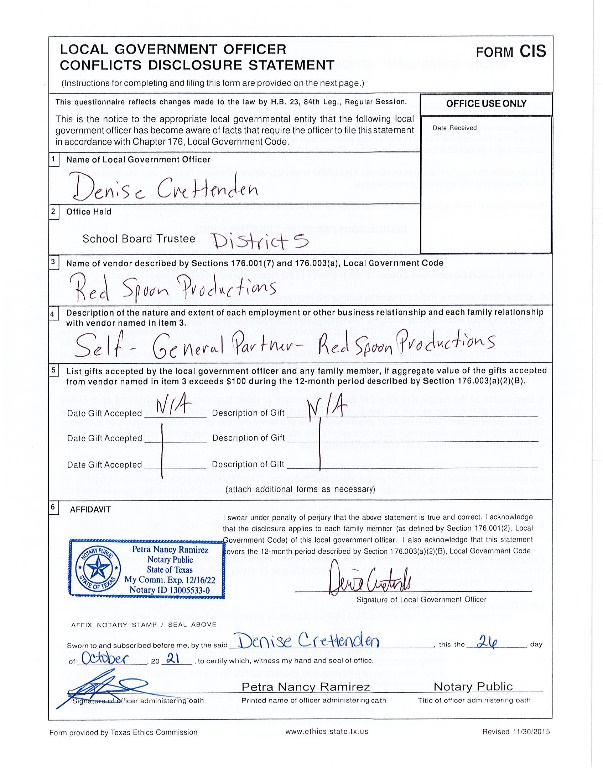 LOCAL GOVERNMENT OFFICER
CONFLICTS DISCLOSURE STATEMENT
FORM CIS
(Instructions for completing and filing this form are provided on the next page.)
This questionnaire reflects changes made to the law by H.B. 23, 84th Leg., Regular Session.
OFFICE USE ONLY
This is the notice to the appropriate local governmental entity that the following local
government officer has become aware of facts that require the officer to file this statement
in accordance with Chapter 176, Local Government Code.
Date Received
1 Name of Local Government Officer
Denise Crettenden
2 Office Held
School Board Trustee District 5
3 Name of vendor described by Sections 176.001(7) and 176.003(a), Local Government Code
Red Spoon Productions
4 Description of the nature and extent of each employment or other business relationship and each family relationship
with vendor named in item 3.
Self - General Partner - Red Spoon Productions
5 List gifts accepted by the local government officer and any family member, if aggregate value of the gifts accepted
from vendor named in item 3 exceeds $100 during the 12-month period described by Section 176.003(a)(2)(B).
Date Gift Accepted N/A Description of Gift N/A
Date Gift Accepted Description of Gift
Date Gift Accepted Description of Gift
(attach additional forms as necessary)
6 AFFIDAVIT
I swear under penalty of perjury that the above statement is true and correct. I acknowledge
that the disclosure applies to each family member (as defined by Section 176.001(2), Local
Government Code) of this local government officer. I also acknowledge that this statement
covers the 12-month period described by Section 176.003(a)(2)(B), Local Government Code.
NOTARY PUBLIC
STATE OF TEXAS
Petra Nancy Ramirez
Notary Public
State of Texas
My Comm. Exp. 12/16/22
Notary ID 13005533-0
Signature of Local Government Officer
AFFIX NOTARY STAMP / SEAL ABOVE
Sworn to and subscribed before me, by the said Denise Crettenden, this the 26 day
of October, 20 21, to certify which, witness my hand and seal of office.
Petra Nancy Ramirez Notary Public
Signature of officer administering oath Printed name of officer administering oath Title of officer administering oath
Form provided by Texas Ethics Commission www.ethics.state.tx.us Revised 11/30/2015